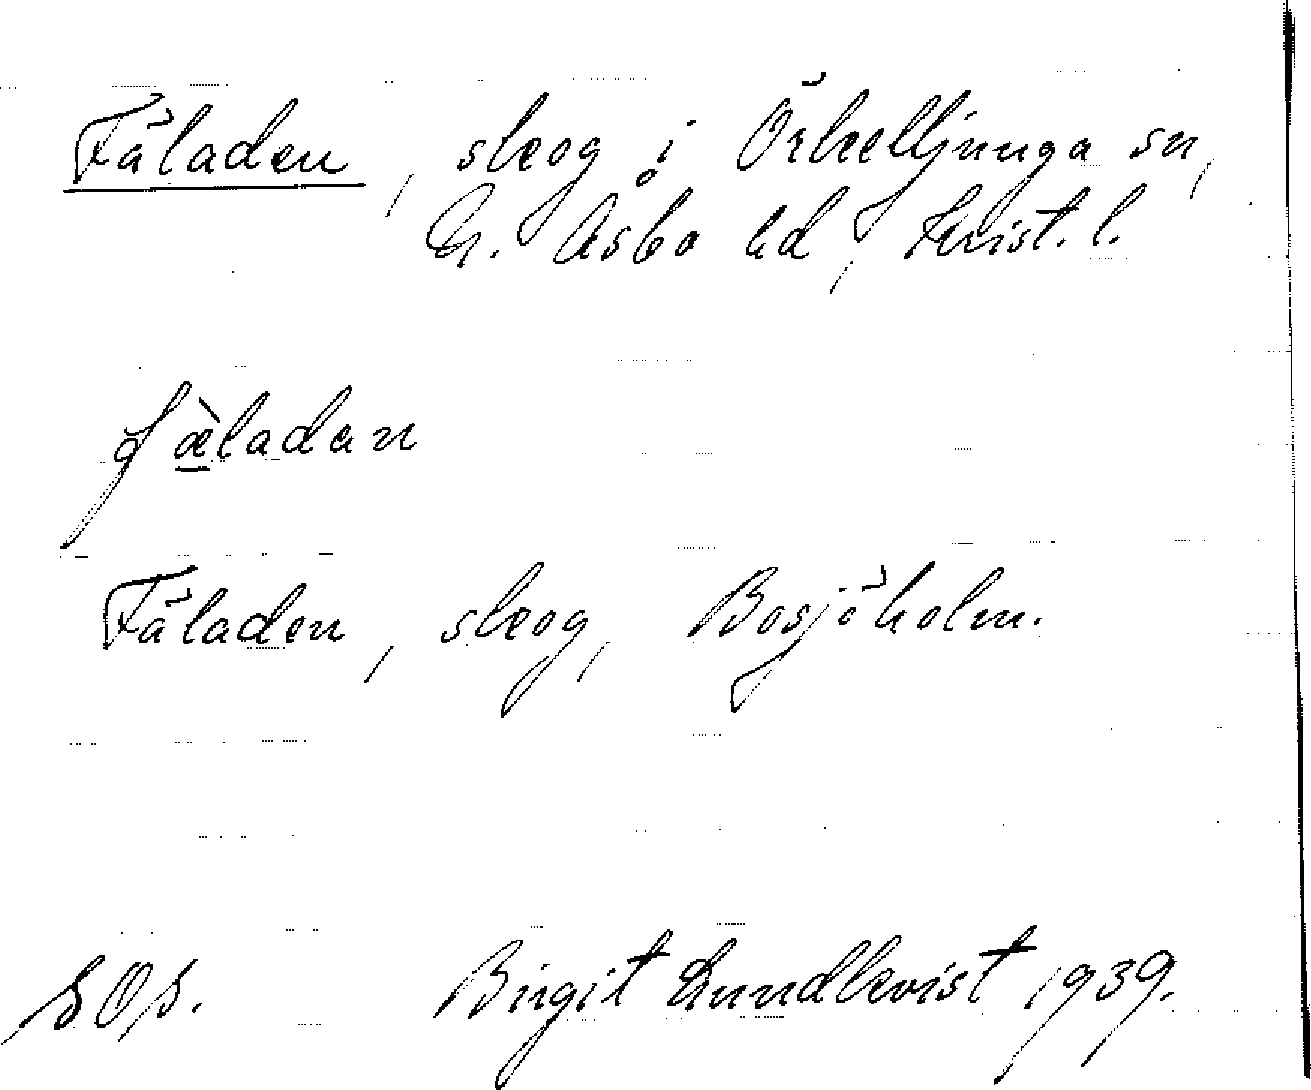 Fäladen, skog i Örkelljunga sn,
N. Åsbo hd, Krist. l.
fæ̀ladan
Fäladen, skog, Bosjöholm.
SOS. Birgit Lundkvist 1939.